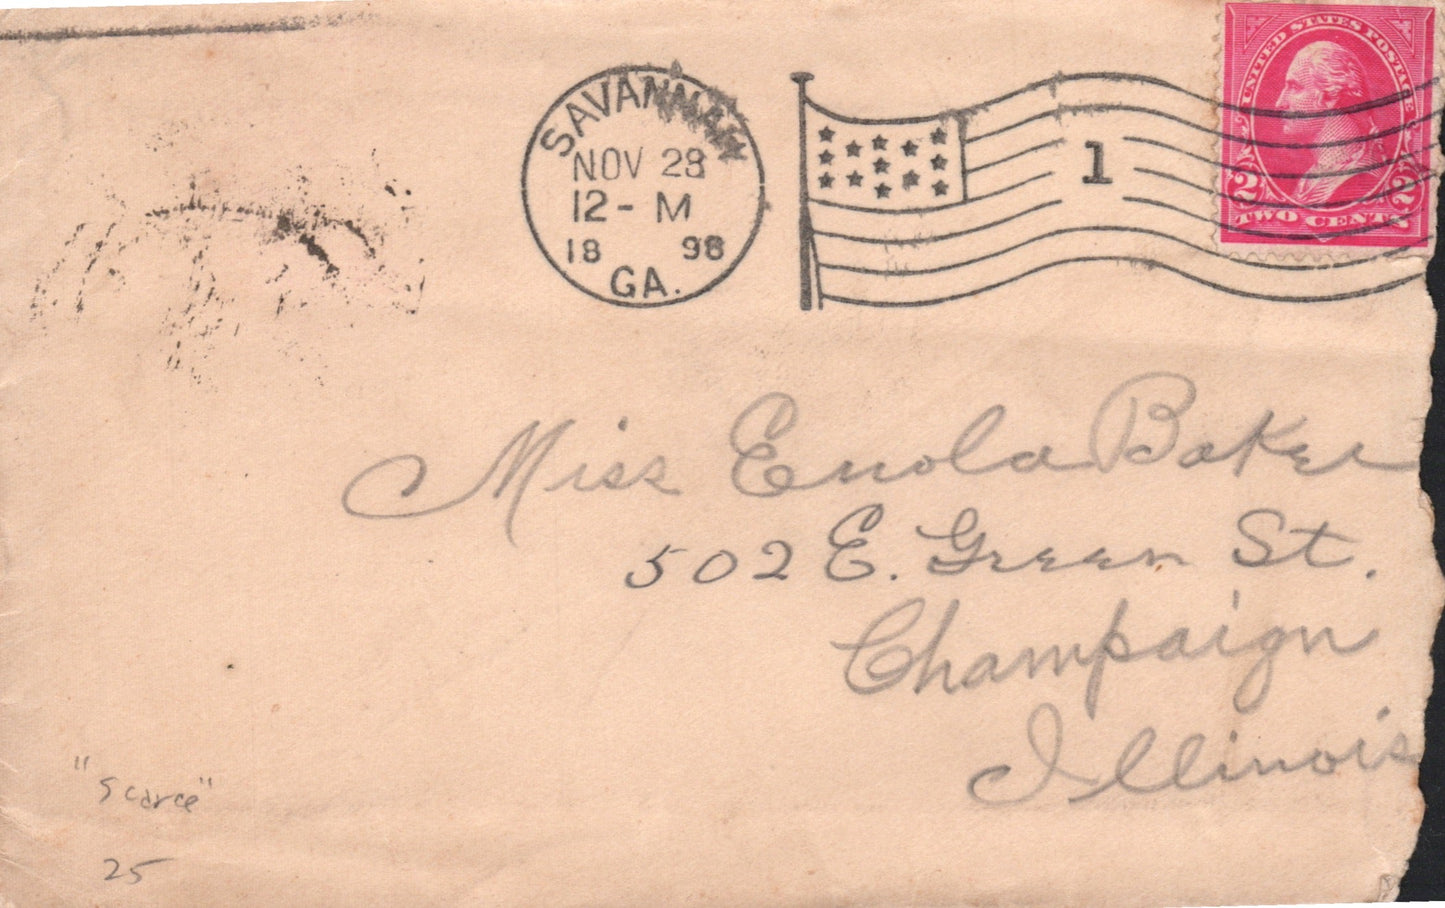 SAVANNAH
NOV 28
12-M
18 98
GA.
1
UNITED STATES POSTAGE
2 2
TWO CENTS
Miss Enola Baker
502 E. Green St.
Champaign
Illinois
"scarce"
25